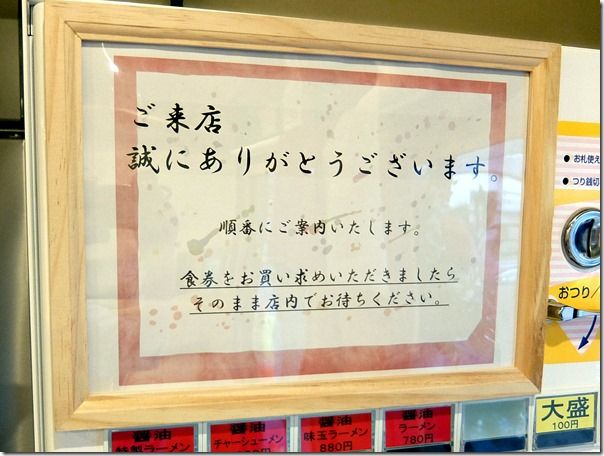 ご来店
誠にありがとうございます。
順番にご案内いたします。
食券をお買い求めいただきましたら
そのまま店内でお待ちください。
● お札使え
● つり銭切
おつり/
醤油
特製ラーメン
醤油
チャーシューメン
醤油
味玉ラーメン
880円
醤油
ラーメン
780円
大盛
100円